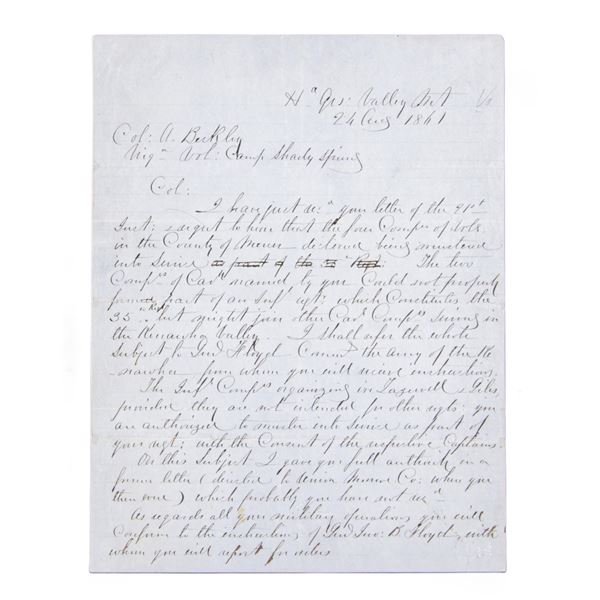 Hd Qrs: Valley Mt
24 Aug 1861
Col: A. Beckley
Virga Vol: Camp Shady Spring
Col:
I have just recd your letter of the 21st
Inst: & regret to hear that the four Comps of Vols
in the County of Mercer declined being mustered
into Service as part of the 35 Regt. The two
Comps of Cavy named by you could not properly
form part of an Infy regt: which Constitutes the
35 Regt but might join other Cavy Comps serving in
the Kenawha Valley. I shall refer the whole
subject to Genl Floyd Commdg the army of the Ke
nawha from whom you will receive instructions.
The Infy Comps organizing in Tazewell & Giles,
provided they are not intended for other regts: you
are authorized to muster into Service as part of
your regt: with the Consent of the respective Captains.
On this Subject I gave you full authority in a
former letter (directed to Mercer Co: where you
then were) which probably you have not recd
As regards all your military operations you will
Conform to the instructions of Genl Jno: B Floyd, with
whom you will report for orders